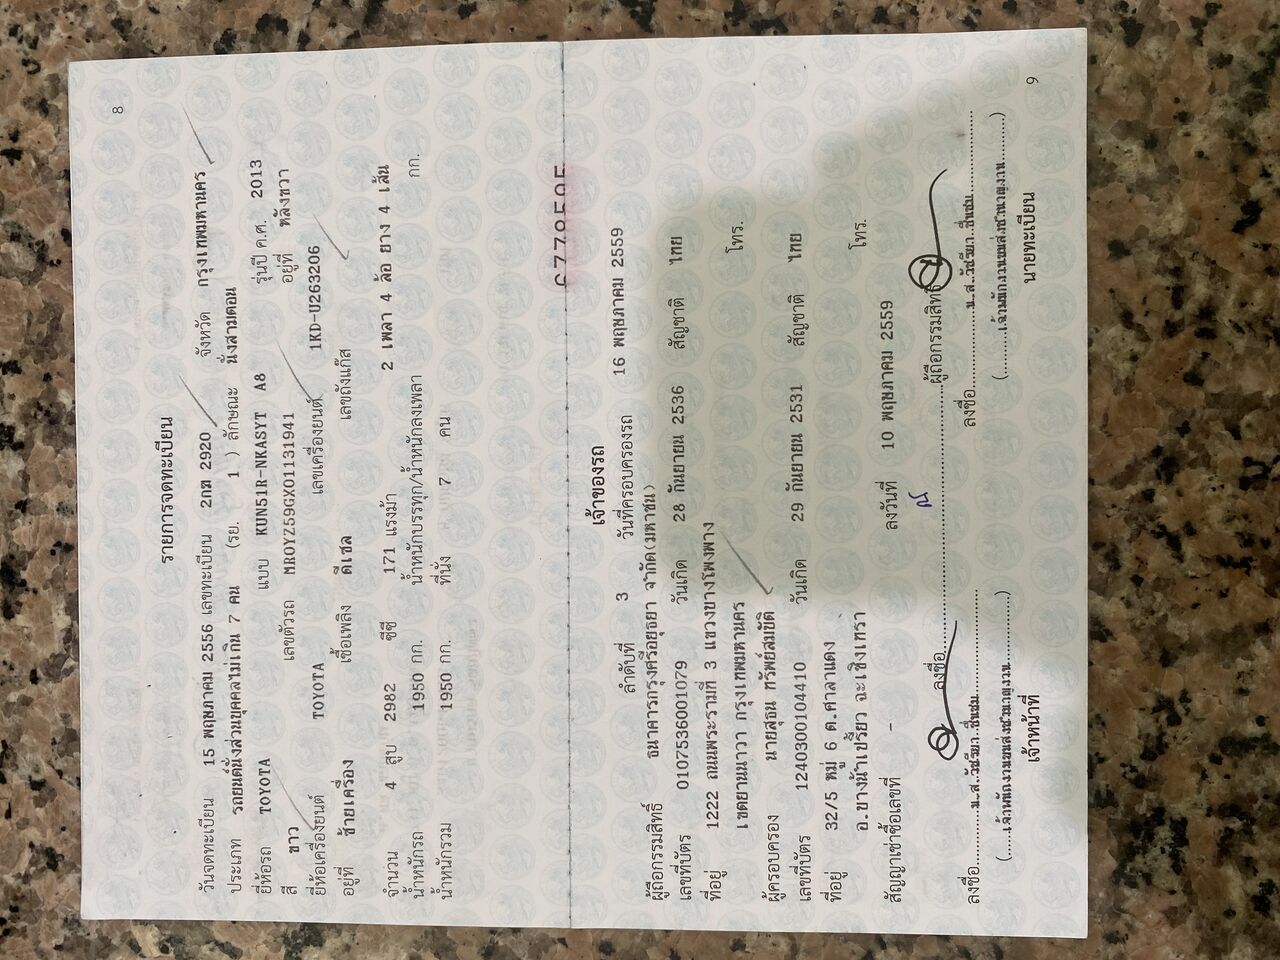 8
รายการจดทะเบียน
วันจดทะเบียน 15 พฤษภาคม 2556 เลขทะเบียน 2กฅ 2920 จังหวัด กรุงเทพมหานคร
ประเภท รถยนต์นั่งส่วนบุคคลไม่เกิน 7 คน (รย. 1 ) ลักษณะ นั่งสามตอน
ยี่ห้อรถ TOYOTA แบบ KUN51R-NKASYT A8 รุ่นปี ค.ศ. 2013
สี ขาว เลขตัวรถ MR0YZ59GX01131941 อยู่ที่ หลังขวา
ยี่ห้อเครื่องยนต์ TOYOTA เลขเครื่องยนต์ 1KD-U263206
อยู่ที่ ซ้ายเครื่อง เชื้อเพลิง ดีเซล เลขถังแก๊ส
จำนวน 4 สูบ 2982 ซีซี 171 แรงม้า 2 เพลา 4 ล้อ ยาง 4 เส้น
น้ำหนักรถ 1950 กก. น้ำหนักบรรทุก/น้ำหนักลงเพลา กก.
น้ำหนักรวม 1950 กก. ที่นั่ง 7 คน
เจ้าของรถ
ลำดับที่ 3 วันที่ครอบครองรถ 16 พฤษภาคม 2559
ผู้ถือกรรมสิทธิ์ ธนาคารกรุงศรีอยุธยา จำกัด(มหาชน)
เลขที่บัตร 0107536001079 วันเกิด 28 กันยายน 2536 สัญชาติ ไทย
ที่อยู่ 1222 ถนนพระรามที่ 3 แขวงบางโพงพาง
เขตยานนาวา กรุงเทพมหานคร โทร.
ผู้ครอบครอง นายสุธน ทรัพย์สมบัติ
เลขที่บัตร 1240300104410 วันเกิด 29 กันยายน 2531 สัญชาติ ไทย
ที่อยู่ 32/5 หมู่ 6 ต.ศาลาแดง
อ.บางน้ำเปรี้ยว ฉะเชิงเทรา โทร.
สัญญาเช่าซื้อเลขที่ - ลงวันที่ 10 พฤษภาคม 2559
ลงชื่อ..............................ผู้ถือกรรมสิทธิ์
ลงชื่อ............น.ส.วัชรียา ชื่นชม............ ลงชื่อ............น.ส.วัชรียา ชื่นชม............
(......เจ้าพนักงานขนส่งชำนาญงาน......) (......เจ้าพนักงานขนส่งชำนาญงาน......)
เจ้าหน้าที่ นายทะเบียน
9